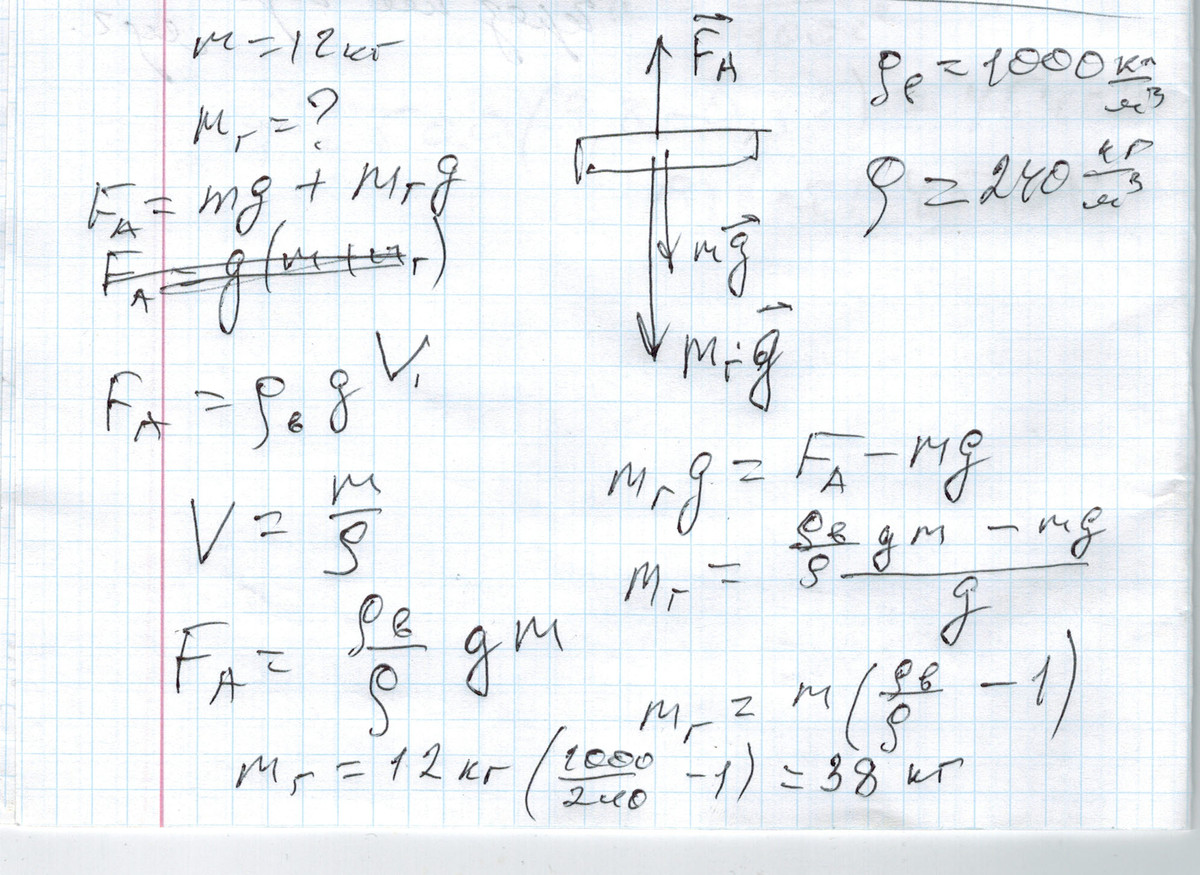 m = 12 кг
mг = ?
FA = mg + mгg
FA = g(m + mг)
FA = ρв g V1
V = m/ρ
FA = ρв/ρ g m
F⃗A
mg⃗
mг·g⃗
ρв = 1000 кг/м³
ρ = 240 кг/м³
mгg = FA − mg
mг = (ρв/ρ gm − mg)/g
mг = m(ρв/ρ − 1)
mг = 12 кг (1000/240 − 1) = 38 кг